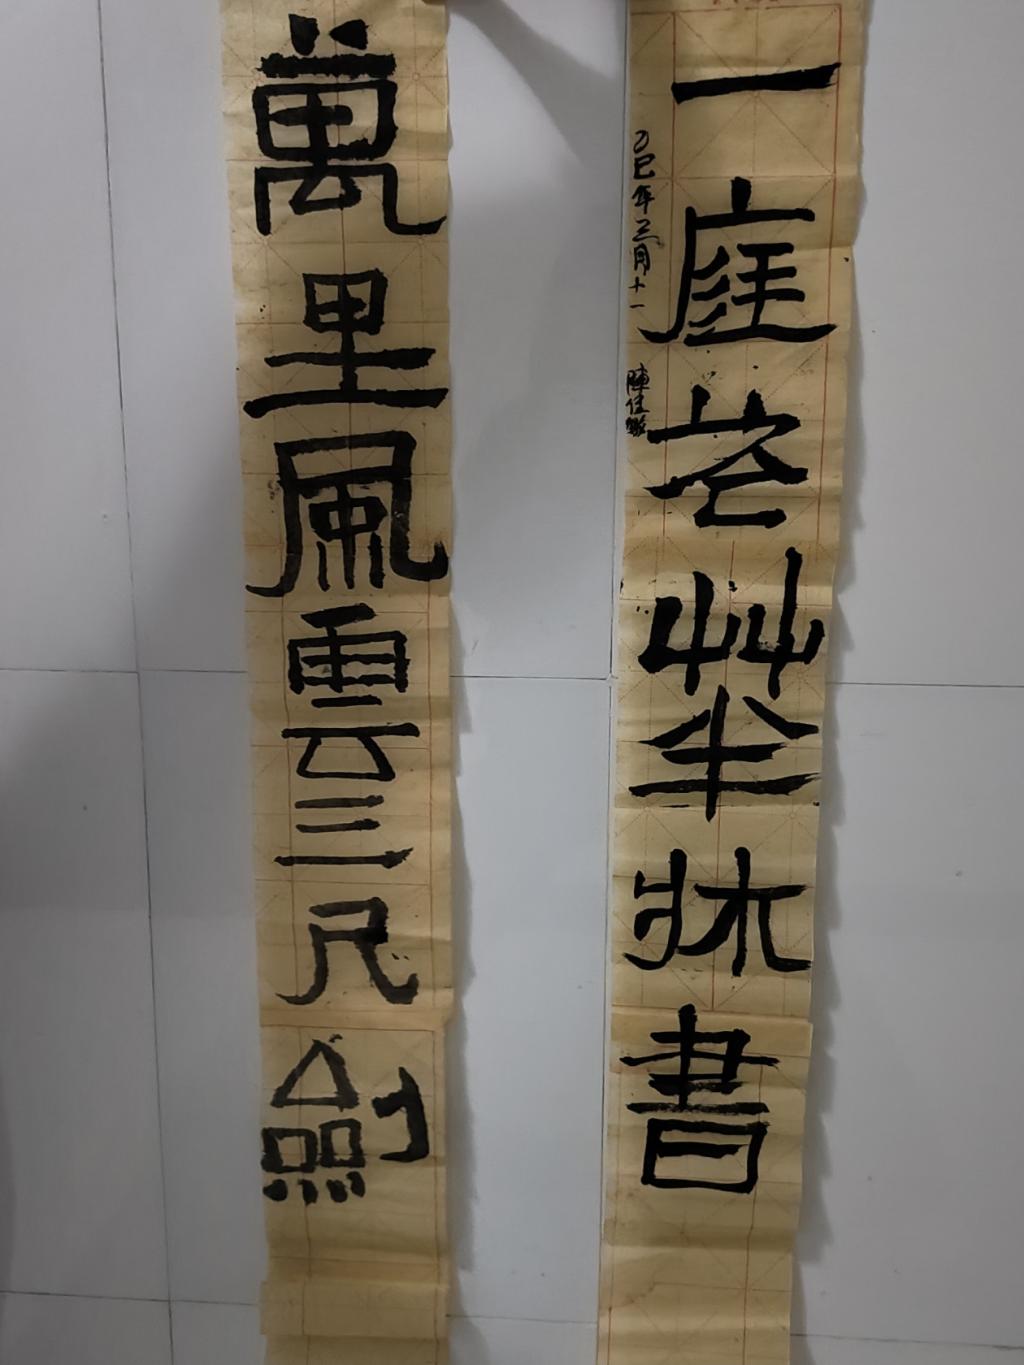 一庭花艸半牀書
乙巳年三月十一
陳佳
萬里風雲三尺劍